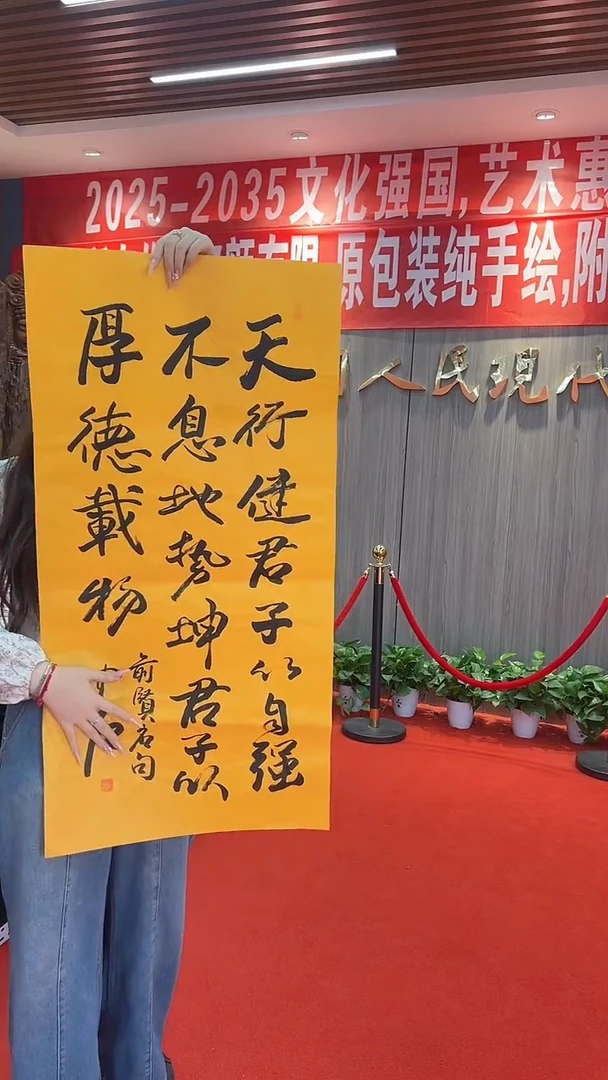 2025-2035文化强国,艺术惠
原包装纯手绘,附
人民现代
天行健君子以自强
不息地势坤君子以
厚德載物
前賢名句